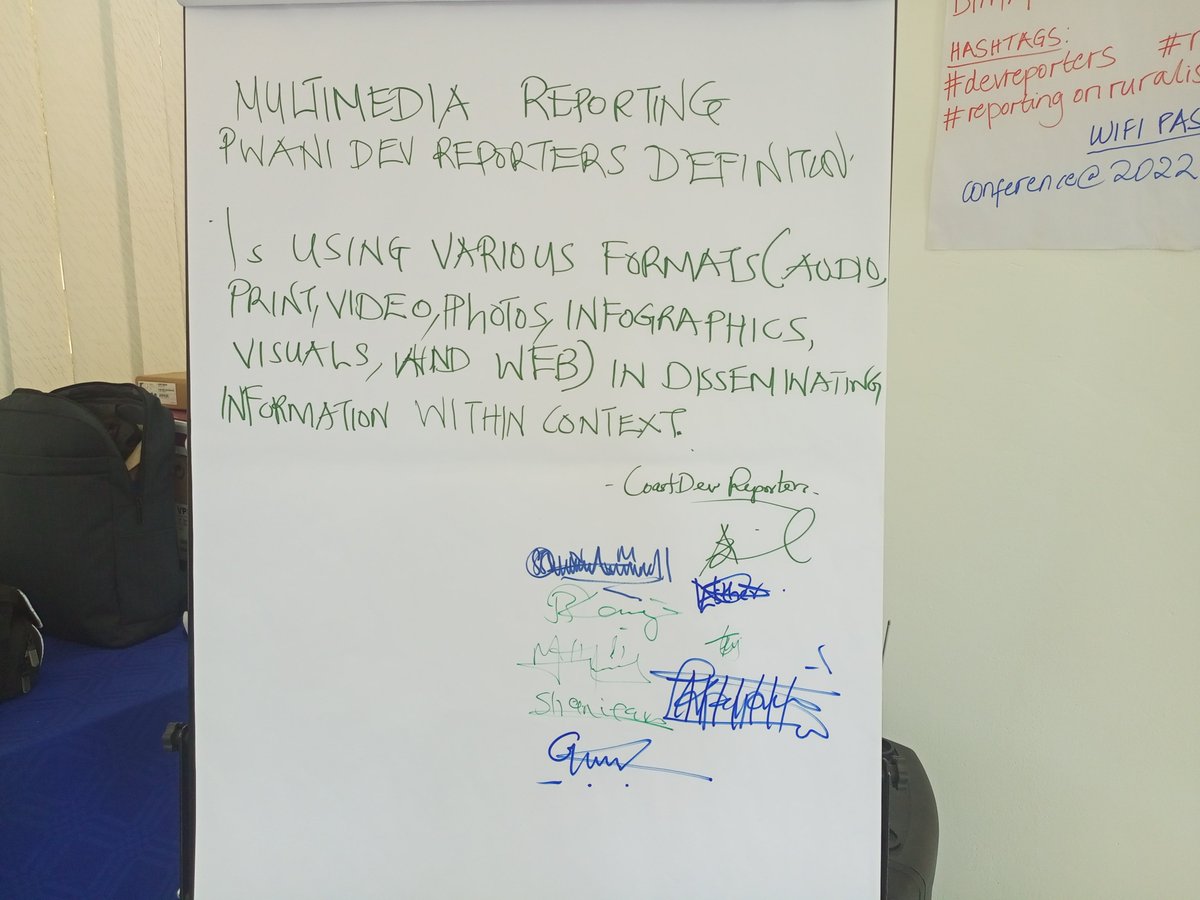 MULTIMEDIA REPORTING
PWANI DEV REPORTERS DEFINITION.
Is USING VARIOUS FORMATS (AUDIO,
PRINT, VIDEO, PHOTOS, INFOGRAPHICS,
VISUALS, AND WEB) IN DISSEMINATING
INFORMATION WITHIN CONTEXT.
- Coast Dev Reporters.
HASHTAGS:
#devreporters #r
#reporting on ruralis
WIFI PAS
conference@2022